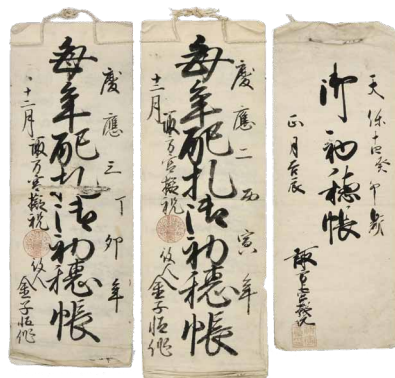 天保十四癸卯歳
御初穂帳
正月吉辰
諏方宮擬祝
慶應二丙寅年
毎年配札御初穂帳
十二月
諏方宮擬祝
役人 金子
慶應三丁卯年
毎年配札御初穂帳
十二月
諏方宮擬祝
役人 金子